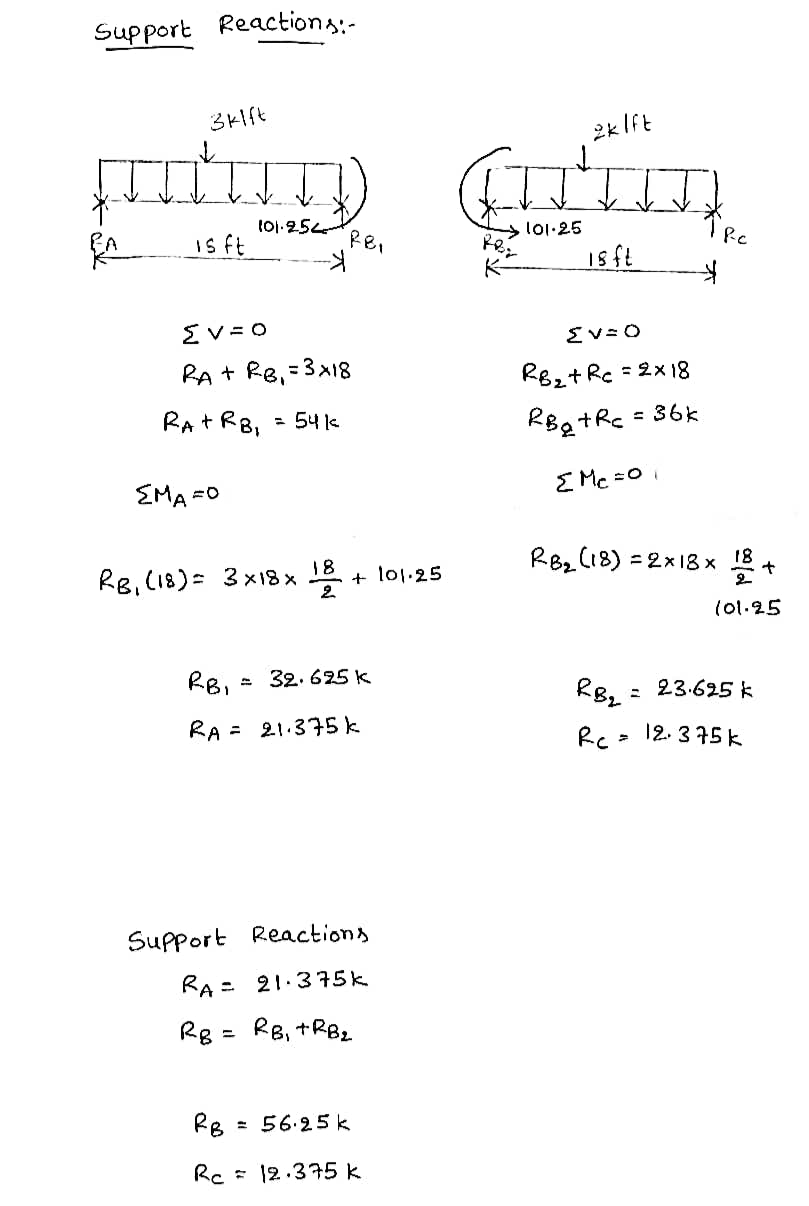 Support Reactions:-
3k/ft
2k/ft
101.25
RA
18 ft
RB1
101.25
RB2
18 ft
RC
ΣV=0
RA + RB1 = 3×18
RA + RB1 = 54k
ΣMA=0
RB1(18) = 3×18× 18/2 + 101.25
RB1 = 32.625k
RA = 21.375k
ΣV=0
RB2+RC = 2×18
RB2+RC = 36k
ΣMC=0
RB2(18) = 2×18× 18/2 +
101.25
RB2 = 23.625k
RC = 12.375k
Support Reactions
RA = 21.375k
RB = RB1+RB2
RB = 56.25k
RC = 12.375k